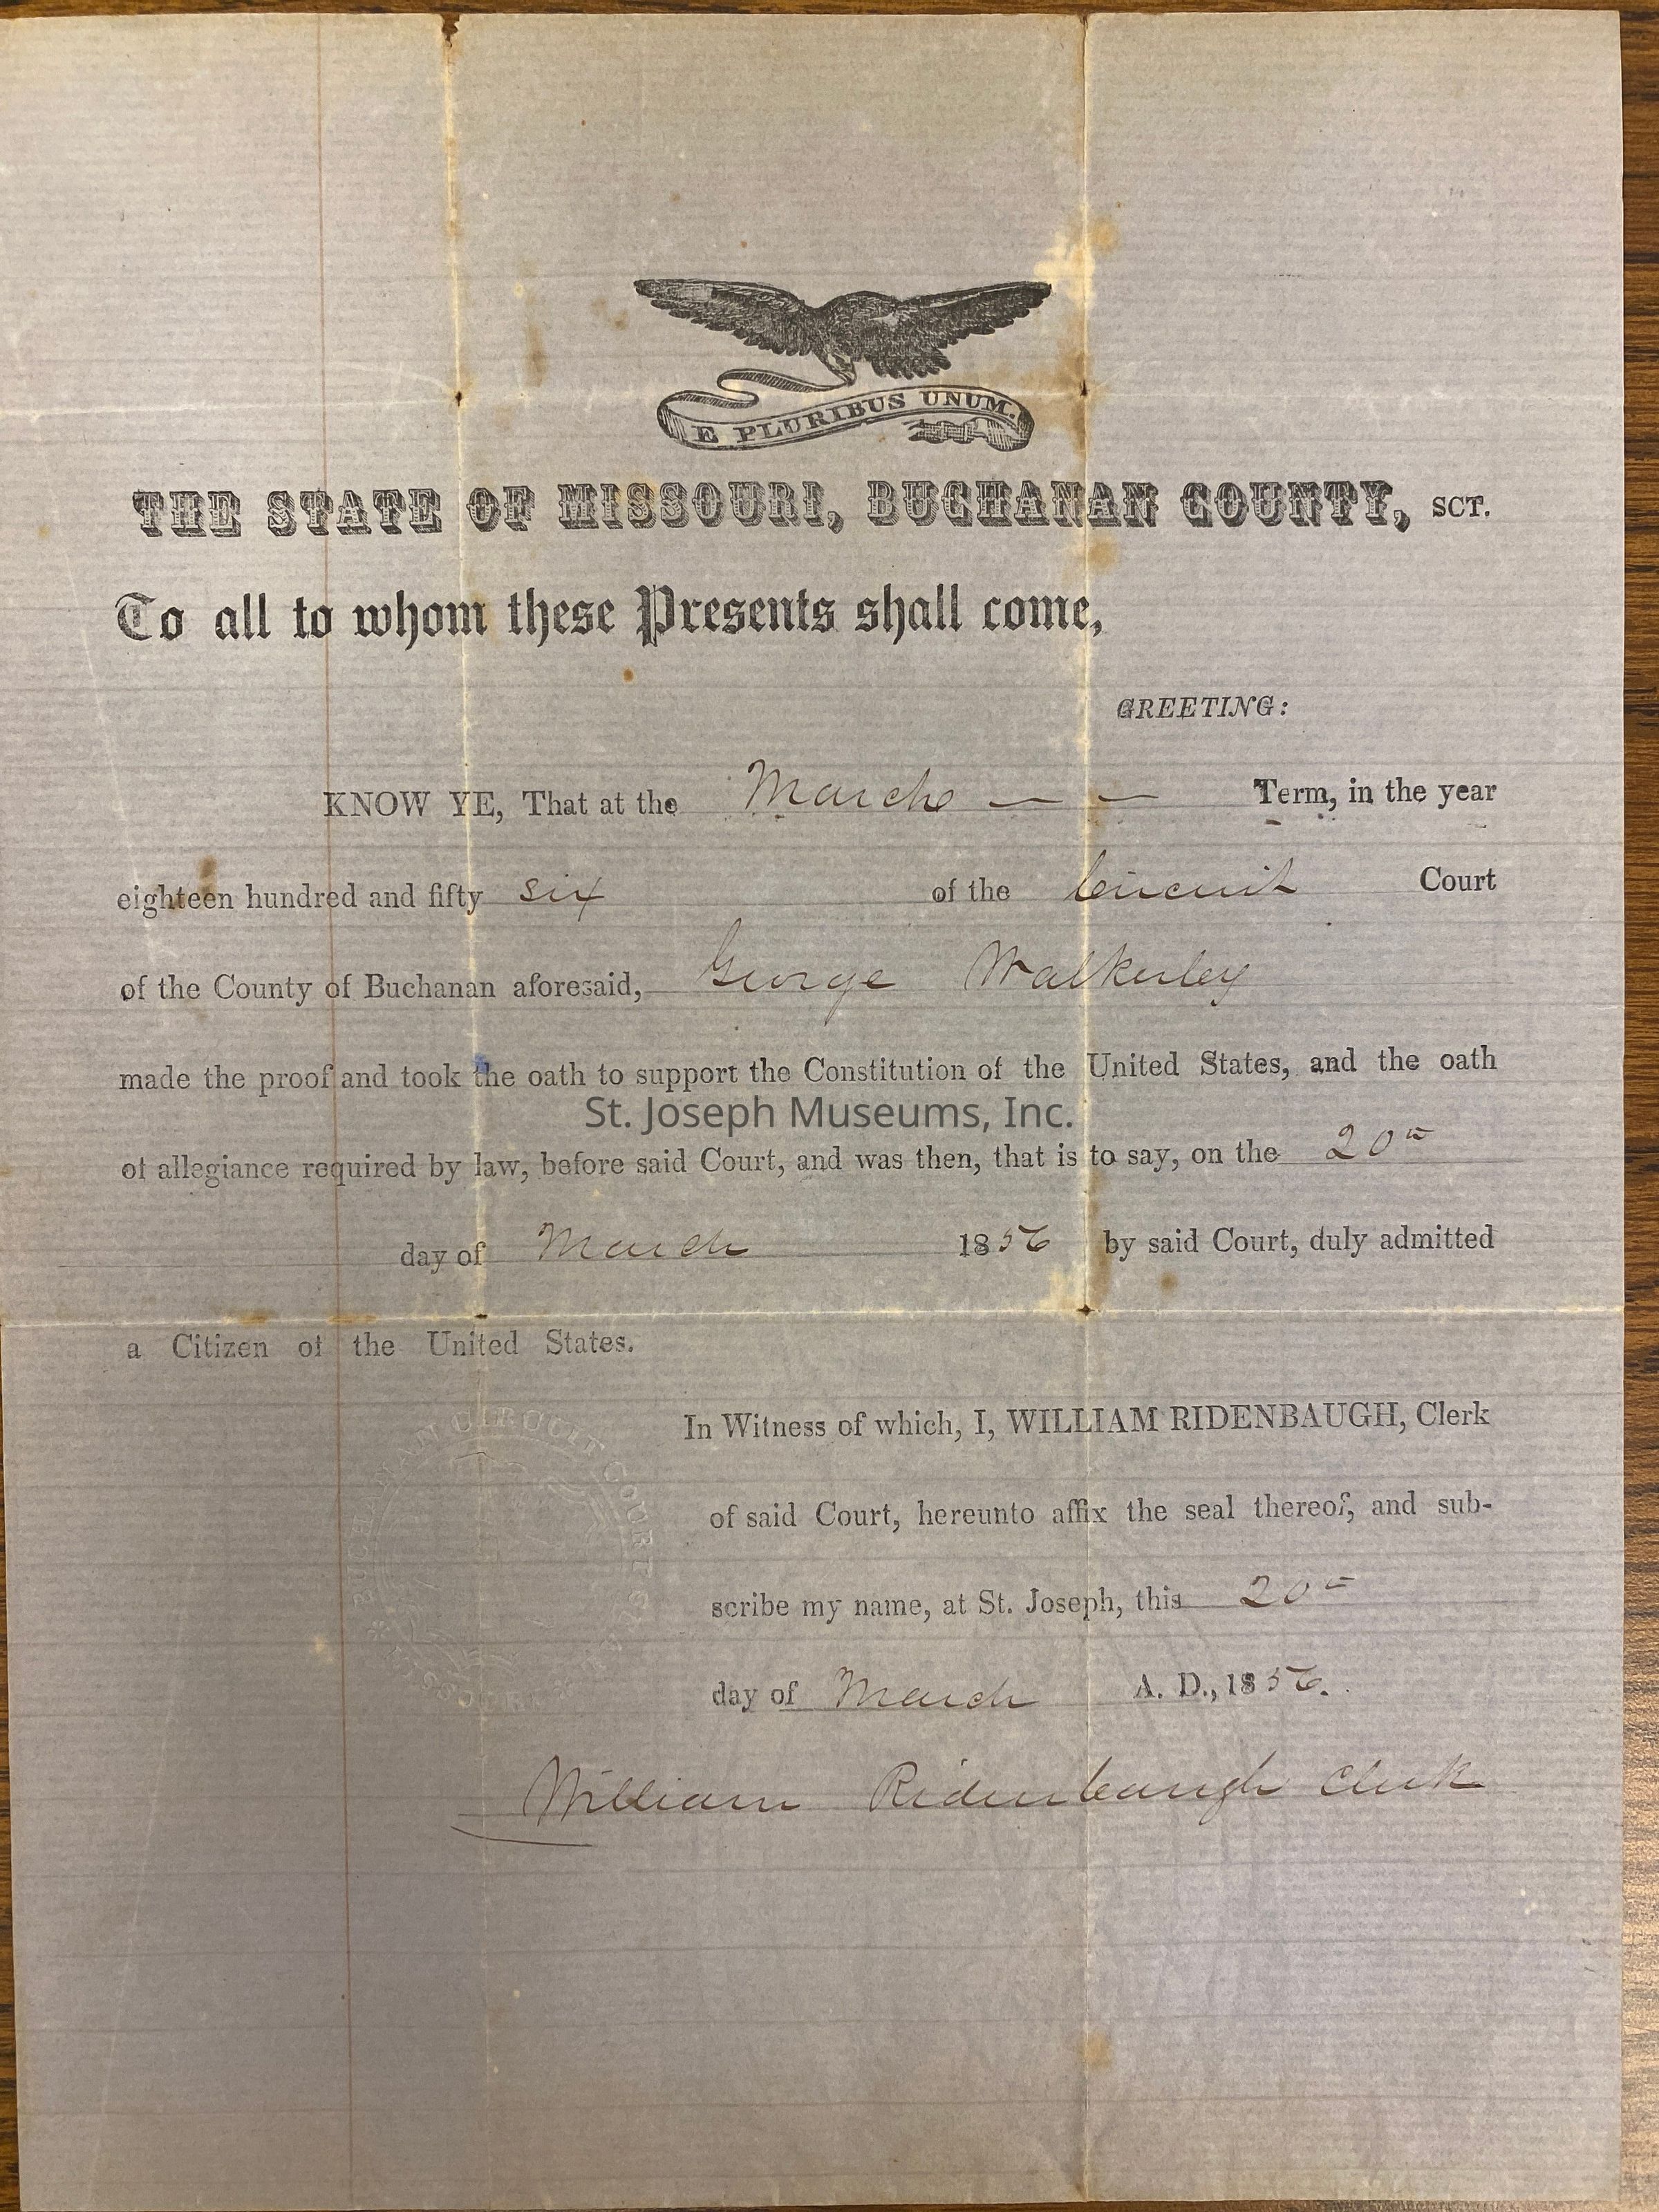 E PLURIBUS UNUM.
THE STATE OF MISSOURI, BUCHANAN COUNTY, SCT.
To all to whom these Presents shall come,
GREETING:
KNOW YE, That at the March — — Term, in the year
eighteen hundred and fifty six of the Circuit Court
of the County of Buchanan aforesaid, George Walkerley
made the proof and took the oath to support the Constitution of the United States, and the oath
St. Joseph Museums, Inc.
of allegiance required by law, before said Court, and was then, that is to say, on the 20
day of March 1856 by said Court, duly admitted
a Citizen of the United States.
In Witness of which, I, WILLIAM RIDENBAUGH, Clerk
of said Court, hereunto affix the seal thereof, and sub-
scribe my name, at St. Joseph, this 20
day of March A. D., 1856.
William Ridenbaugh Clerk
CIRCUIT COURT